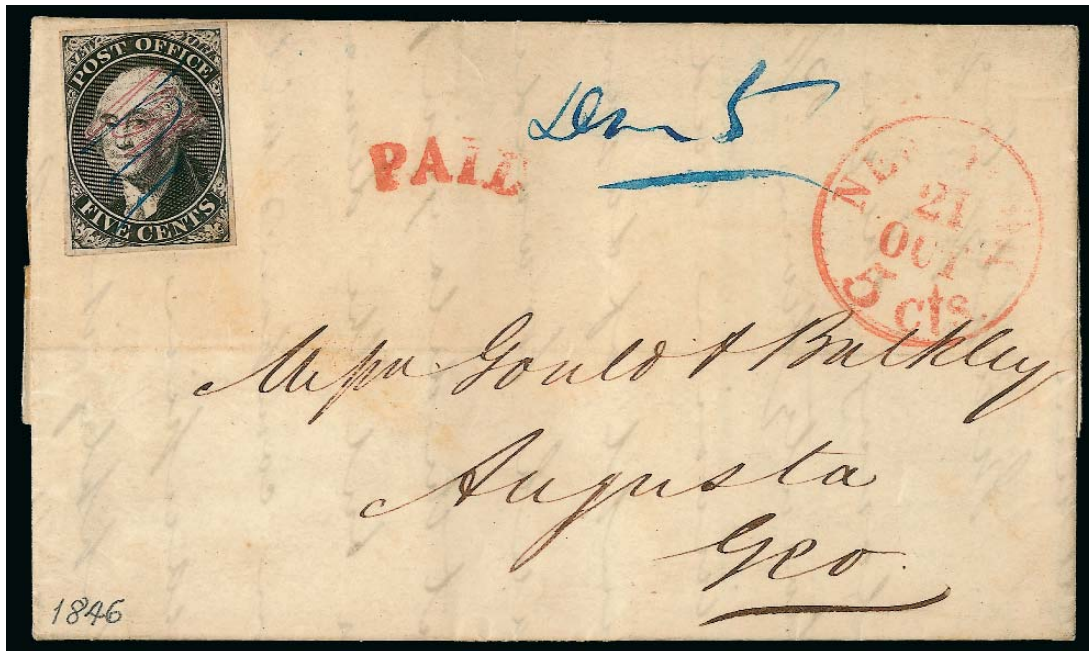 NEW YORK
POST OFFICE
FIVE CENTS
PAID
5
NEW
21
OCT
5 cts.
Messrs Gould & Bulkley
Augusta
Geo.
1846